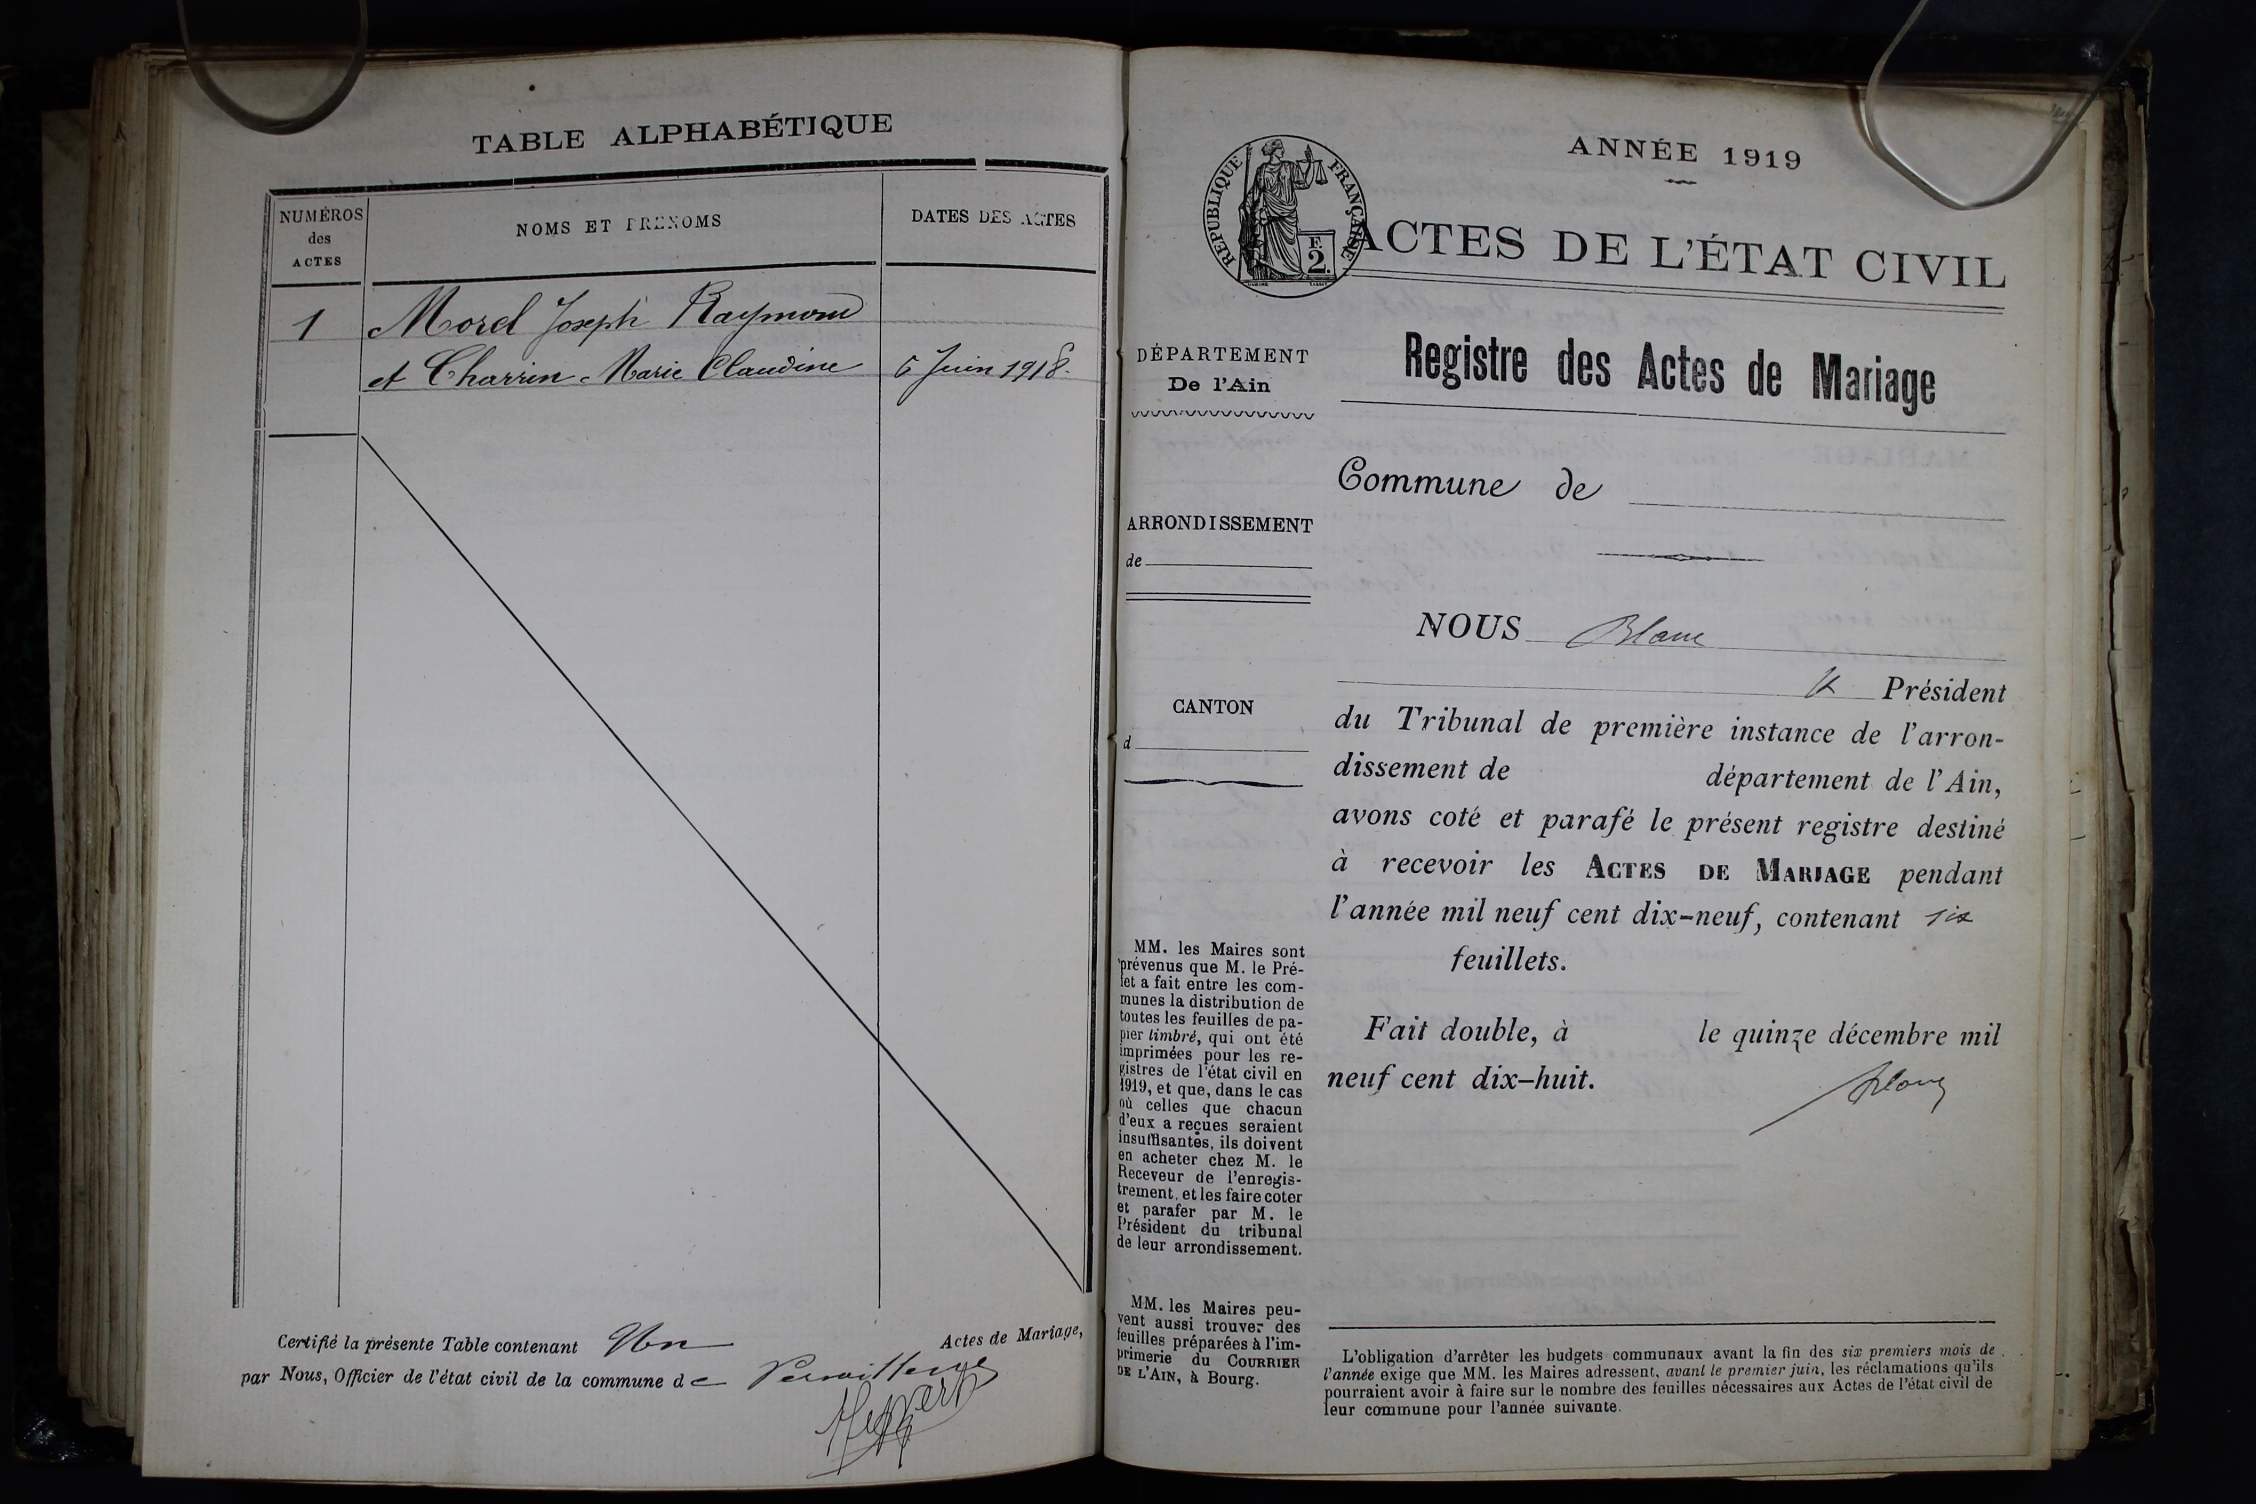 TABLE ALPHABÉTIQUE
NUMÉROS
des
ACTES
NOMS ET PRENOMS
DATES DES ACTES
1
Morel Joseph Raymond
et Charrin Marie Claudine
6 Juin 1918.
Certifié la présente Table contenant Un Actes de Mariage,
par Nous, Officier de l'état civil de la commune de
ANNÉE 1919
RÉPUBLIQUE FRANÇAISE
F.
2.
ACTES DE L'ÉTAT CIVIL
DÉPARTEMENT
De l'Ain
ARRONDISSEMENT
de
CANTON
d
MM. les Maires sont
prévenus que M. le Pré-
fet a fait entre les com-
munes la distribution de
toutes les feuilles de pa-
pier timbré, qui ont été
imprimées pour les re-
gistres de l'état civil en
1919, et que, dans le cas
où celles que chacun
d'eux a reçues seraient
insuffisantes, ils doivent
en acheter chez M. le
Receveur de l'enregis-
trement, et les faire coter
et parafer par M. le
Président du tribunal
de leur arrondissement.
MM. les Maires peu-
vent aussi trouver des
feuilles préparées à l'im-
primerie du COURRIER
DE L'AIN, à Bourg.
Registre des Actes de Mariage
Commune de
NOUS Blanc
Président
du Tribunal de première instance de l'arron-
dissement de département de l'Ain,
avons coté et parafé le présent registre destiné
à recevoir les ACTES DE MARIAGE pendant
l'année mil neuf cent dix-neuf, contenant six
feuillets.
Fait double, à le quinze décembre mil
neuf cent dix-huit.
Blanc
L'obligation d'arrêter les budgets communaux avant la fin des six premiers mois de
l'année exige que MM. les Maires adressent, avant le premier juin, les réclamations qu'ils
pourraient avoir à faire sur le nombre des feuilles nécessaires aux Actes de l'état civil de
leur commune pour l'année suivante.